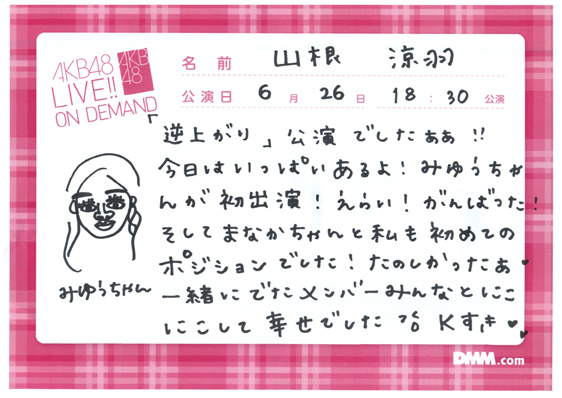 AKB48
LIVE!!
ON DEMAND
AKB
48
名前 山根 涼羽
公演日 6月26日 18:30公演
「逆上がり」公演でしたぁぁ!!
今日はいっぱいあるよ!みゆうちゃ
んが初出演!えらい!がんばった!
そしてまなかちゃんと私も初めての
ポジションでした!たのしかったぁ♥
一緒にでたメンバーみんなとにこ
にこして幸せでした Kすき♥♥
みゆうちゃん
DMM.com